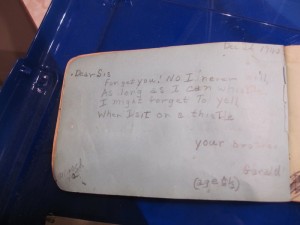 Dear Sis
Forget you! No I never will
As long as I can whistle
I might forget to yell
When I sit on a thistle
your brother
Gerald